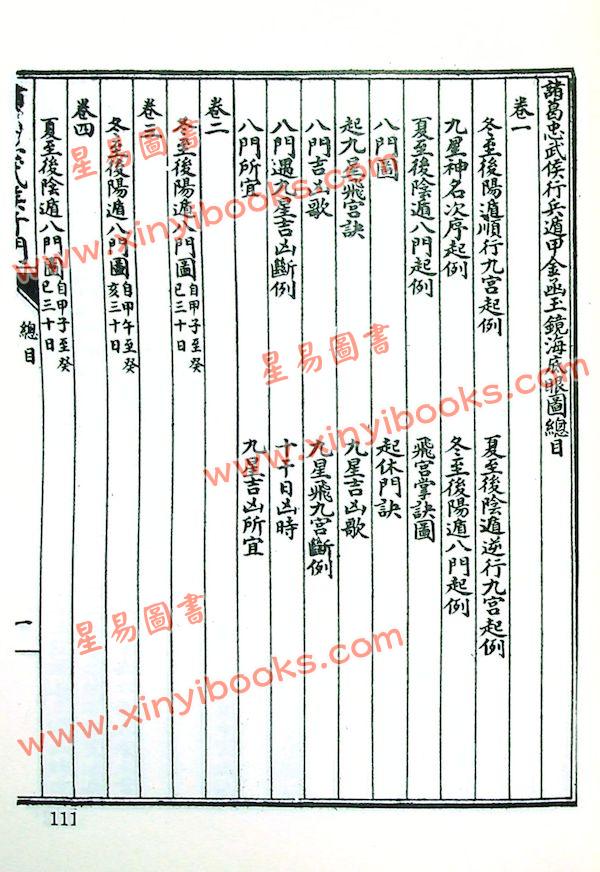 諸葛忠武侯行兵遁甲金函玉鏡海底眼圖總目
卷一
冬至後陽遁順行九宮起例 夏至後陰遁逆行九宮起例
九星神名次序起例 冬至後陽遁八門起例
夏至後陰遁八門起例 飛宮掌訣圖
八門圖 起休門訣
起九星飛宮訣 九星吉凶歌
八門吉凶歌 九星飛九宮斷例
八門遇九星吉凶斷例 十干日凶時
八門所宜 九星吉凶所宜
卷二
冬至後陽遁八門圖 自甲子至癸巳三十日
卷三
冬至後陽遁八門圖 自甲午至癸亥三十日
卷四
夏至後陰遁八門圖 自甲子至癸巳三十日
總目
一
111
星易圖書
www.xinyibooks.com
星易圖書
www.xinyibooks.com
星易圖書
www.xinyibooks.com